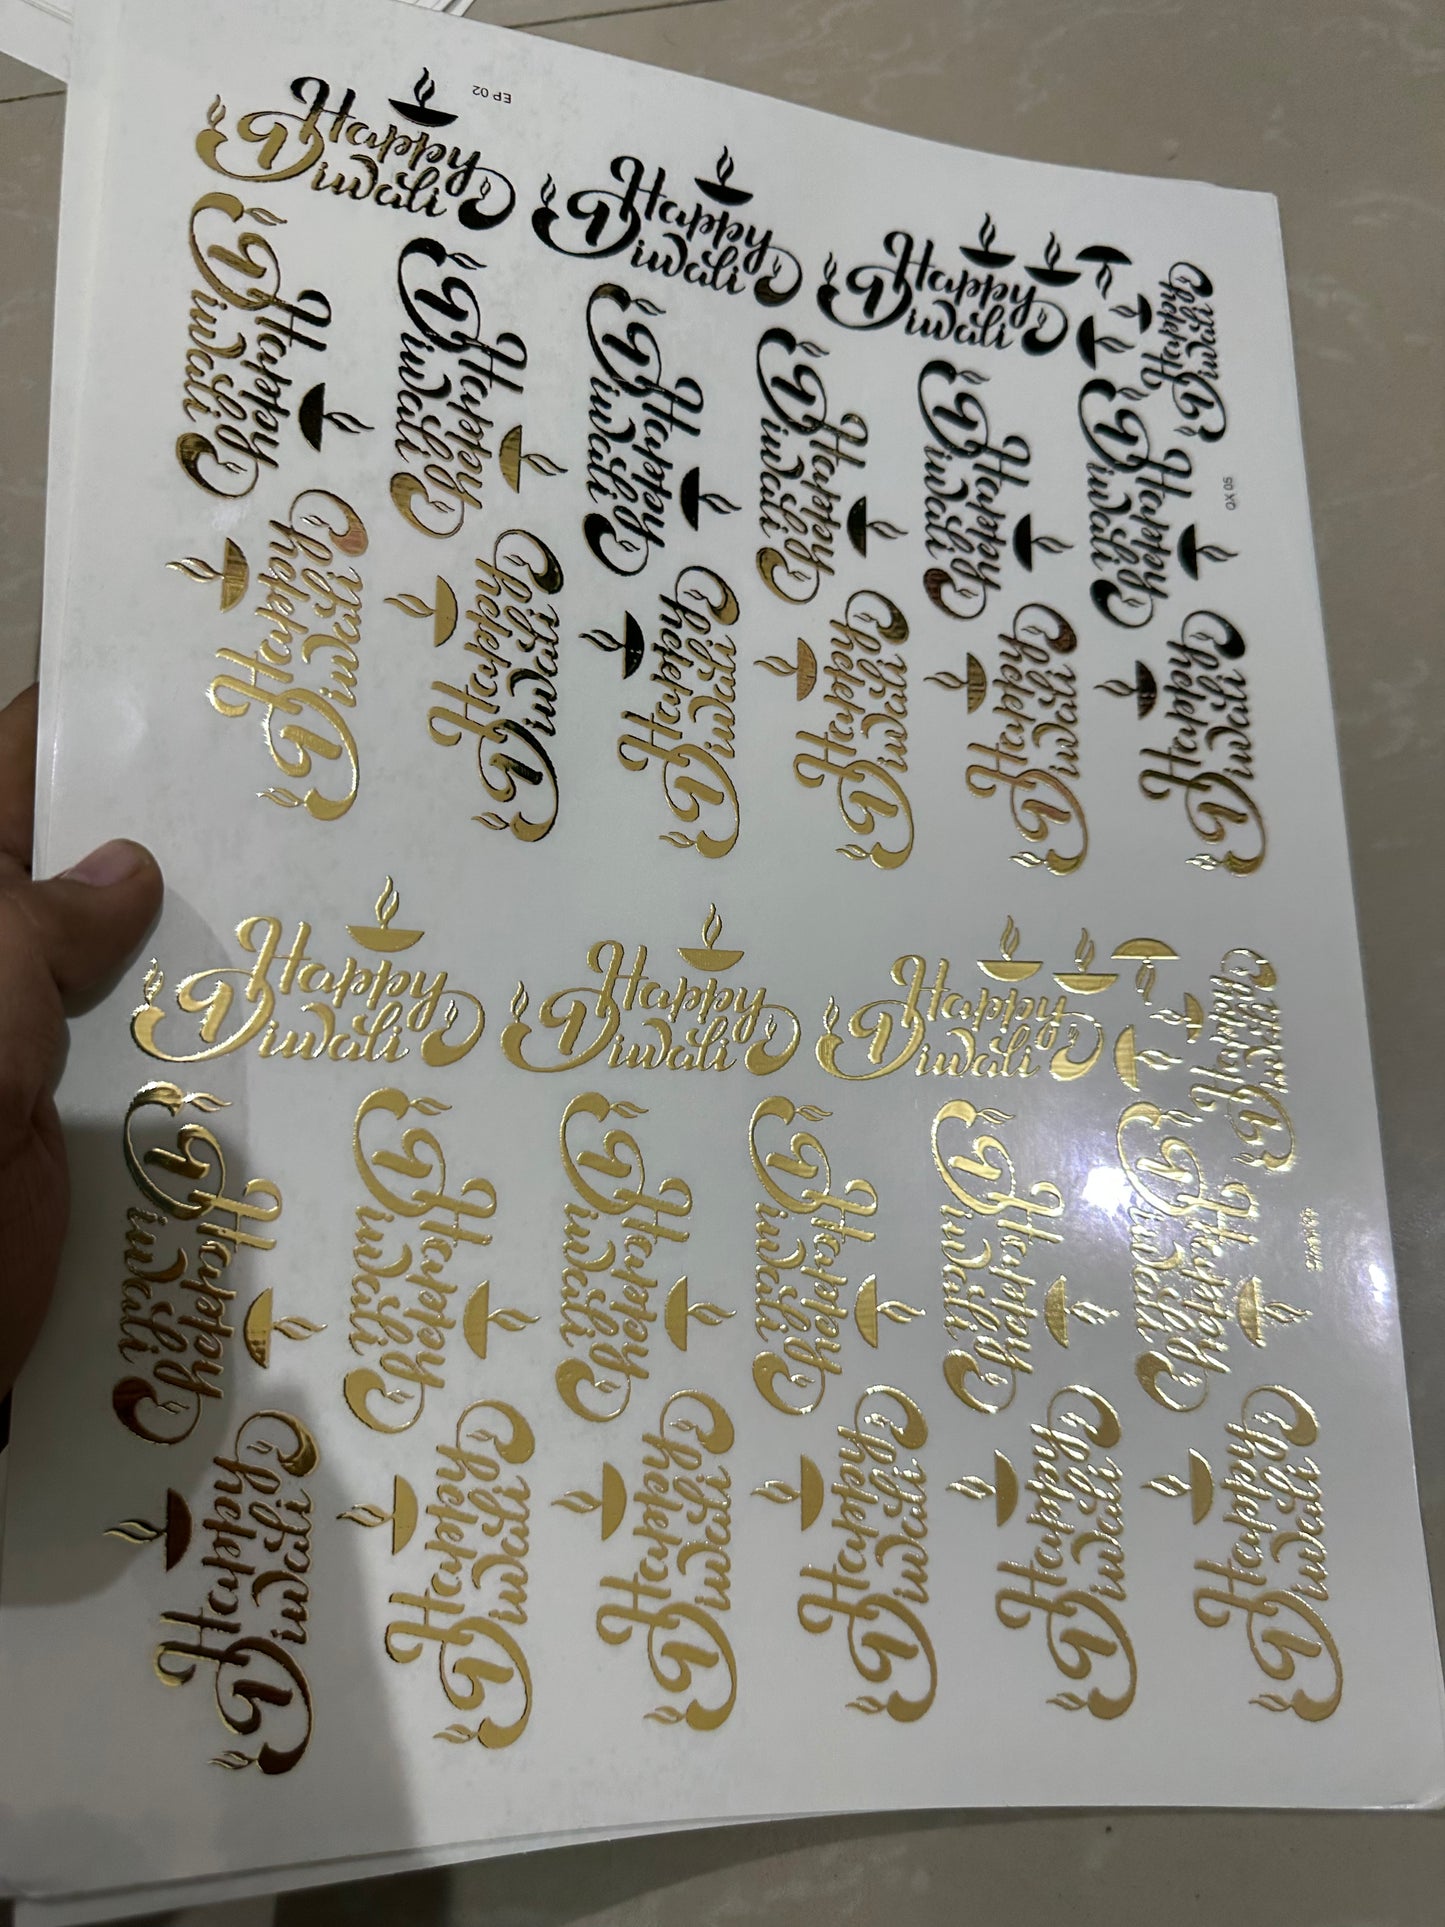 EP 02
Happy
Diwali
Happy
Diwali
Happy
Diwali
Happy
Diwali
QX 05
Happy
Diwali
Happy
Diwali
Happy
Diwali
Happy
Diwali
Happy
Diwali
Happy
Diwali
Happy
Diwali
Happy
Diwali
Happy
Diwali
Happy
Diwali
Happy
Diwali
Happy
Diwali
Happy
Diwali
Happy
Diwali
Happy
Diwali
Happy
Diwali
Happy
Diwali
Happy
Diwali
Happy
Diwali
Happy
Diwali
Happy
Diwali
Happy
Diwali
Happy
Diwali
Happy
Diwali
Happy
Diwali
Happy
Diwali
Happy
Diwali
Happy
Diwali